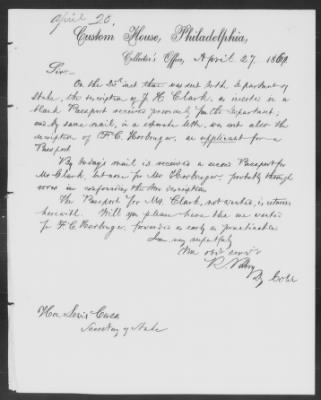 April 20.
Custom House, Philadelphia,
Collector's Office, April 27, 186
Sir
On the 23d inst there was sent to the Department of
State, the description of J. H. Clark, as inserted in a
blank Passport received previously from the Department,
and by same mail, in a separate letter, was sent also the
description of F. C. Horbruger, as applicant for a
Passport
By today's mail is received a second Passport for
Mr Clark, but none for Mr Horbruger, probably through
error in
The Passport for Mr. Clark, not wanted, is returned
herewith. Will you please have the one wanted
for F. C. Horbruger, forwarded as early as practicable
I am very respectfully
Your obt servt
Dy Coll
Hon Lewis Cass
Secretary of State